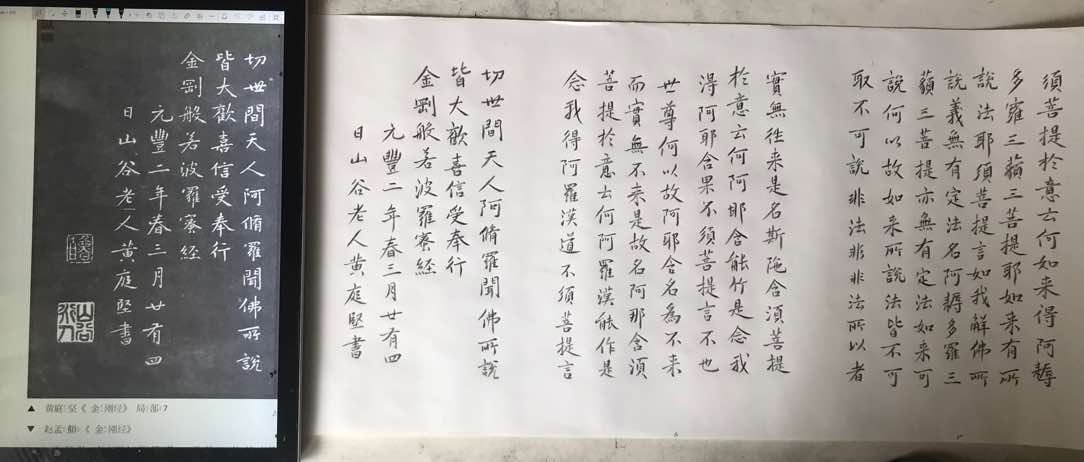 切世間天人阿脩羅聞佛所說
皆大歡喜信受奉行
金剛般若波羅蜜経
元豐二年春三月廿有四
日山谷老人黄庭堅書
▲ 黄庭坚《金刚经》局部7
▼ 赵孟頫《金刚经》
須菩提於意云何如来得阿耨
多羅三藐三菩提耶如来有所
說法耶須菩提言如我解佛所
說義無有定法名阿耨多羅三
藐三菩提亦無有定法如来可
說何以故如来所說法皆不可
取不可說非法非非法所以者
實無往来是名斯陁含須菩提
於意云何阿耶含能作是念我
得阿耶含果不須菩提言不也
世尊何以故阿耶含名為不来
而實無不来是故名阿那含須
菩提於意云何阿羅漢能作是
念我得阿羅漢道不須菩提言
切世間天人阿脩羅聞佛所說
皆大歡喜信受奉行
金剛般若波羅蜜経
元豐二年春三月廿有四
日山谷老人黄庭堅書